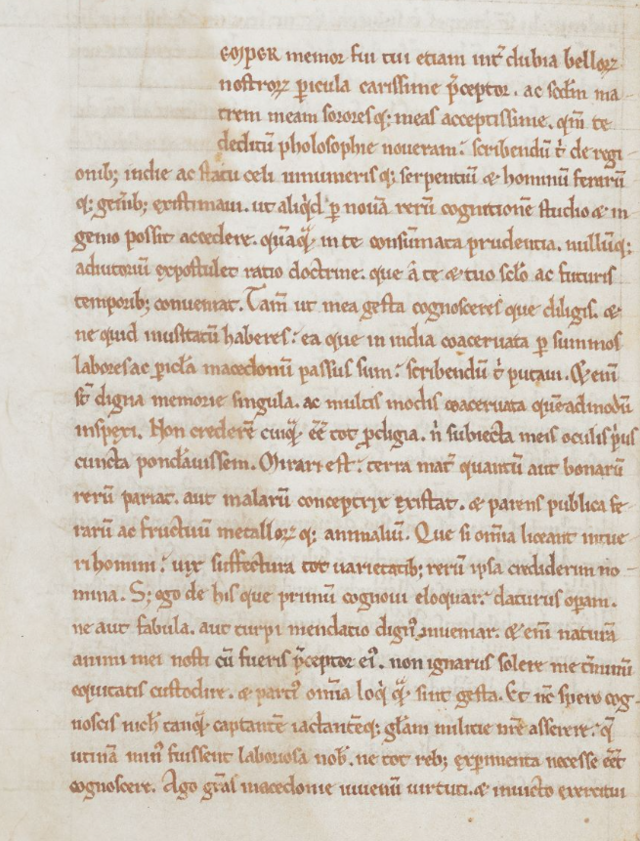 EOSPER memor fui tui etiam intˀ dubia belloꝝ
nostroꝝ ꝑicula carissime p̄ceptor . ac scdm̄ ma
trem meam sorores q; meas acceptissime . qm̄ te
deditū pholosophie noueram : scribendū t̓ de regi
onib; indie ac statu celi innumeris q; serpentiū & hominū ferarū
q; gentib; existimaui . ut aliqͥd ꝑ nouā rerū cognitionē studio & in
genio possit accedere . quāqͣ in te consūmata prudentia . nullūq;
adiutoriū expostulet ratio doctrine . que & te & tuo sclo ac futuris
temporib; conueniat . Tam̄ ut mea gesta cognosceres que diligis . &
ne quid inusitatū haberes : ea que in india coaceruata ꝑ summos
labores ac ꝑicl̄a macedonū passus sum : scribendū t̓ putaui . Q enī
st̄ digna memorie singula . ac multis modis coaceruata quēadmodū
inspexi . Non crederē cuiqͣ ēē tot ꝓdigia . n̄ subiecta meis oculis pͥus
cuncta ponderauissem . Mirari est : terra matˀ quantū aut bonarū
rerū pariat . aut malarū conceptrix existat . & parens publica fe
rarū ac fructuū metalloꝝ q; animaliū . Que si om̄ia liceant intue
ri homini : uix suffectura tot uarietatib; rerū ipsa crediderim no
mina . S; ego de his que primū cognoui eloquar : daturus opam .
ne aut fabula . aut turpi mendatio dignꝰ inueniar . & enī naturā
animi mei nosti cū fueris p̄ceptor eiꝰ . non ignarus solere me t̓minū
equitatis custodire . & parciꝰ om̄ia loqͥ qͣ sint gesta . Et nc̄ spero cog
noscis nich̄ tanqͣ captantē iactantēq; glām militie nr̄e asserere : qͣ
utinā minꝰ fuissent laboriosa nob̄ . ne tot reb; exꝑimenta necesse eēt
cognoscere . Ago gr̄as macedonie iuuenū uirtuti . & inuicto exercitui